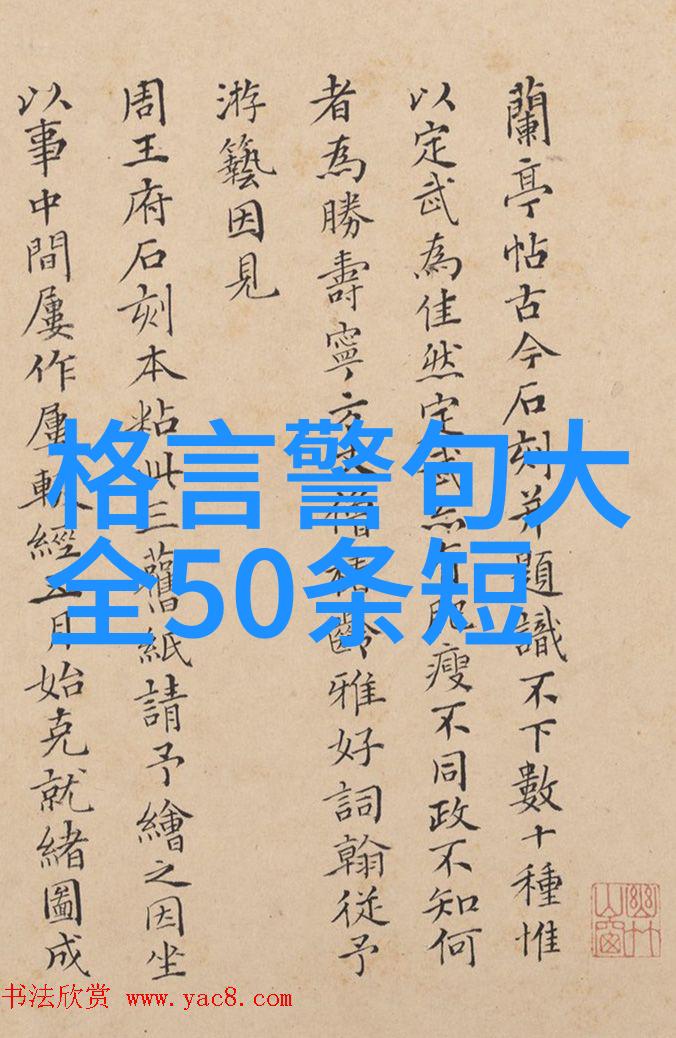 蘭亭帖古今石刻并題識不下數十種惟
以定武為佳然定武亦有肥瘦不同政不知何
者為勝壽寧方丈僧齡雅好詞翰從予
游藝因見
周王府石刻本粘此三舊紙請予繪之因坐
以事中間屢作屢輟經五月始克就緒圖成
格言警句大
全50条短
幽竹山窗
书法欣赏 www.yac8.com